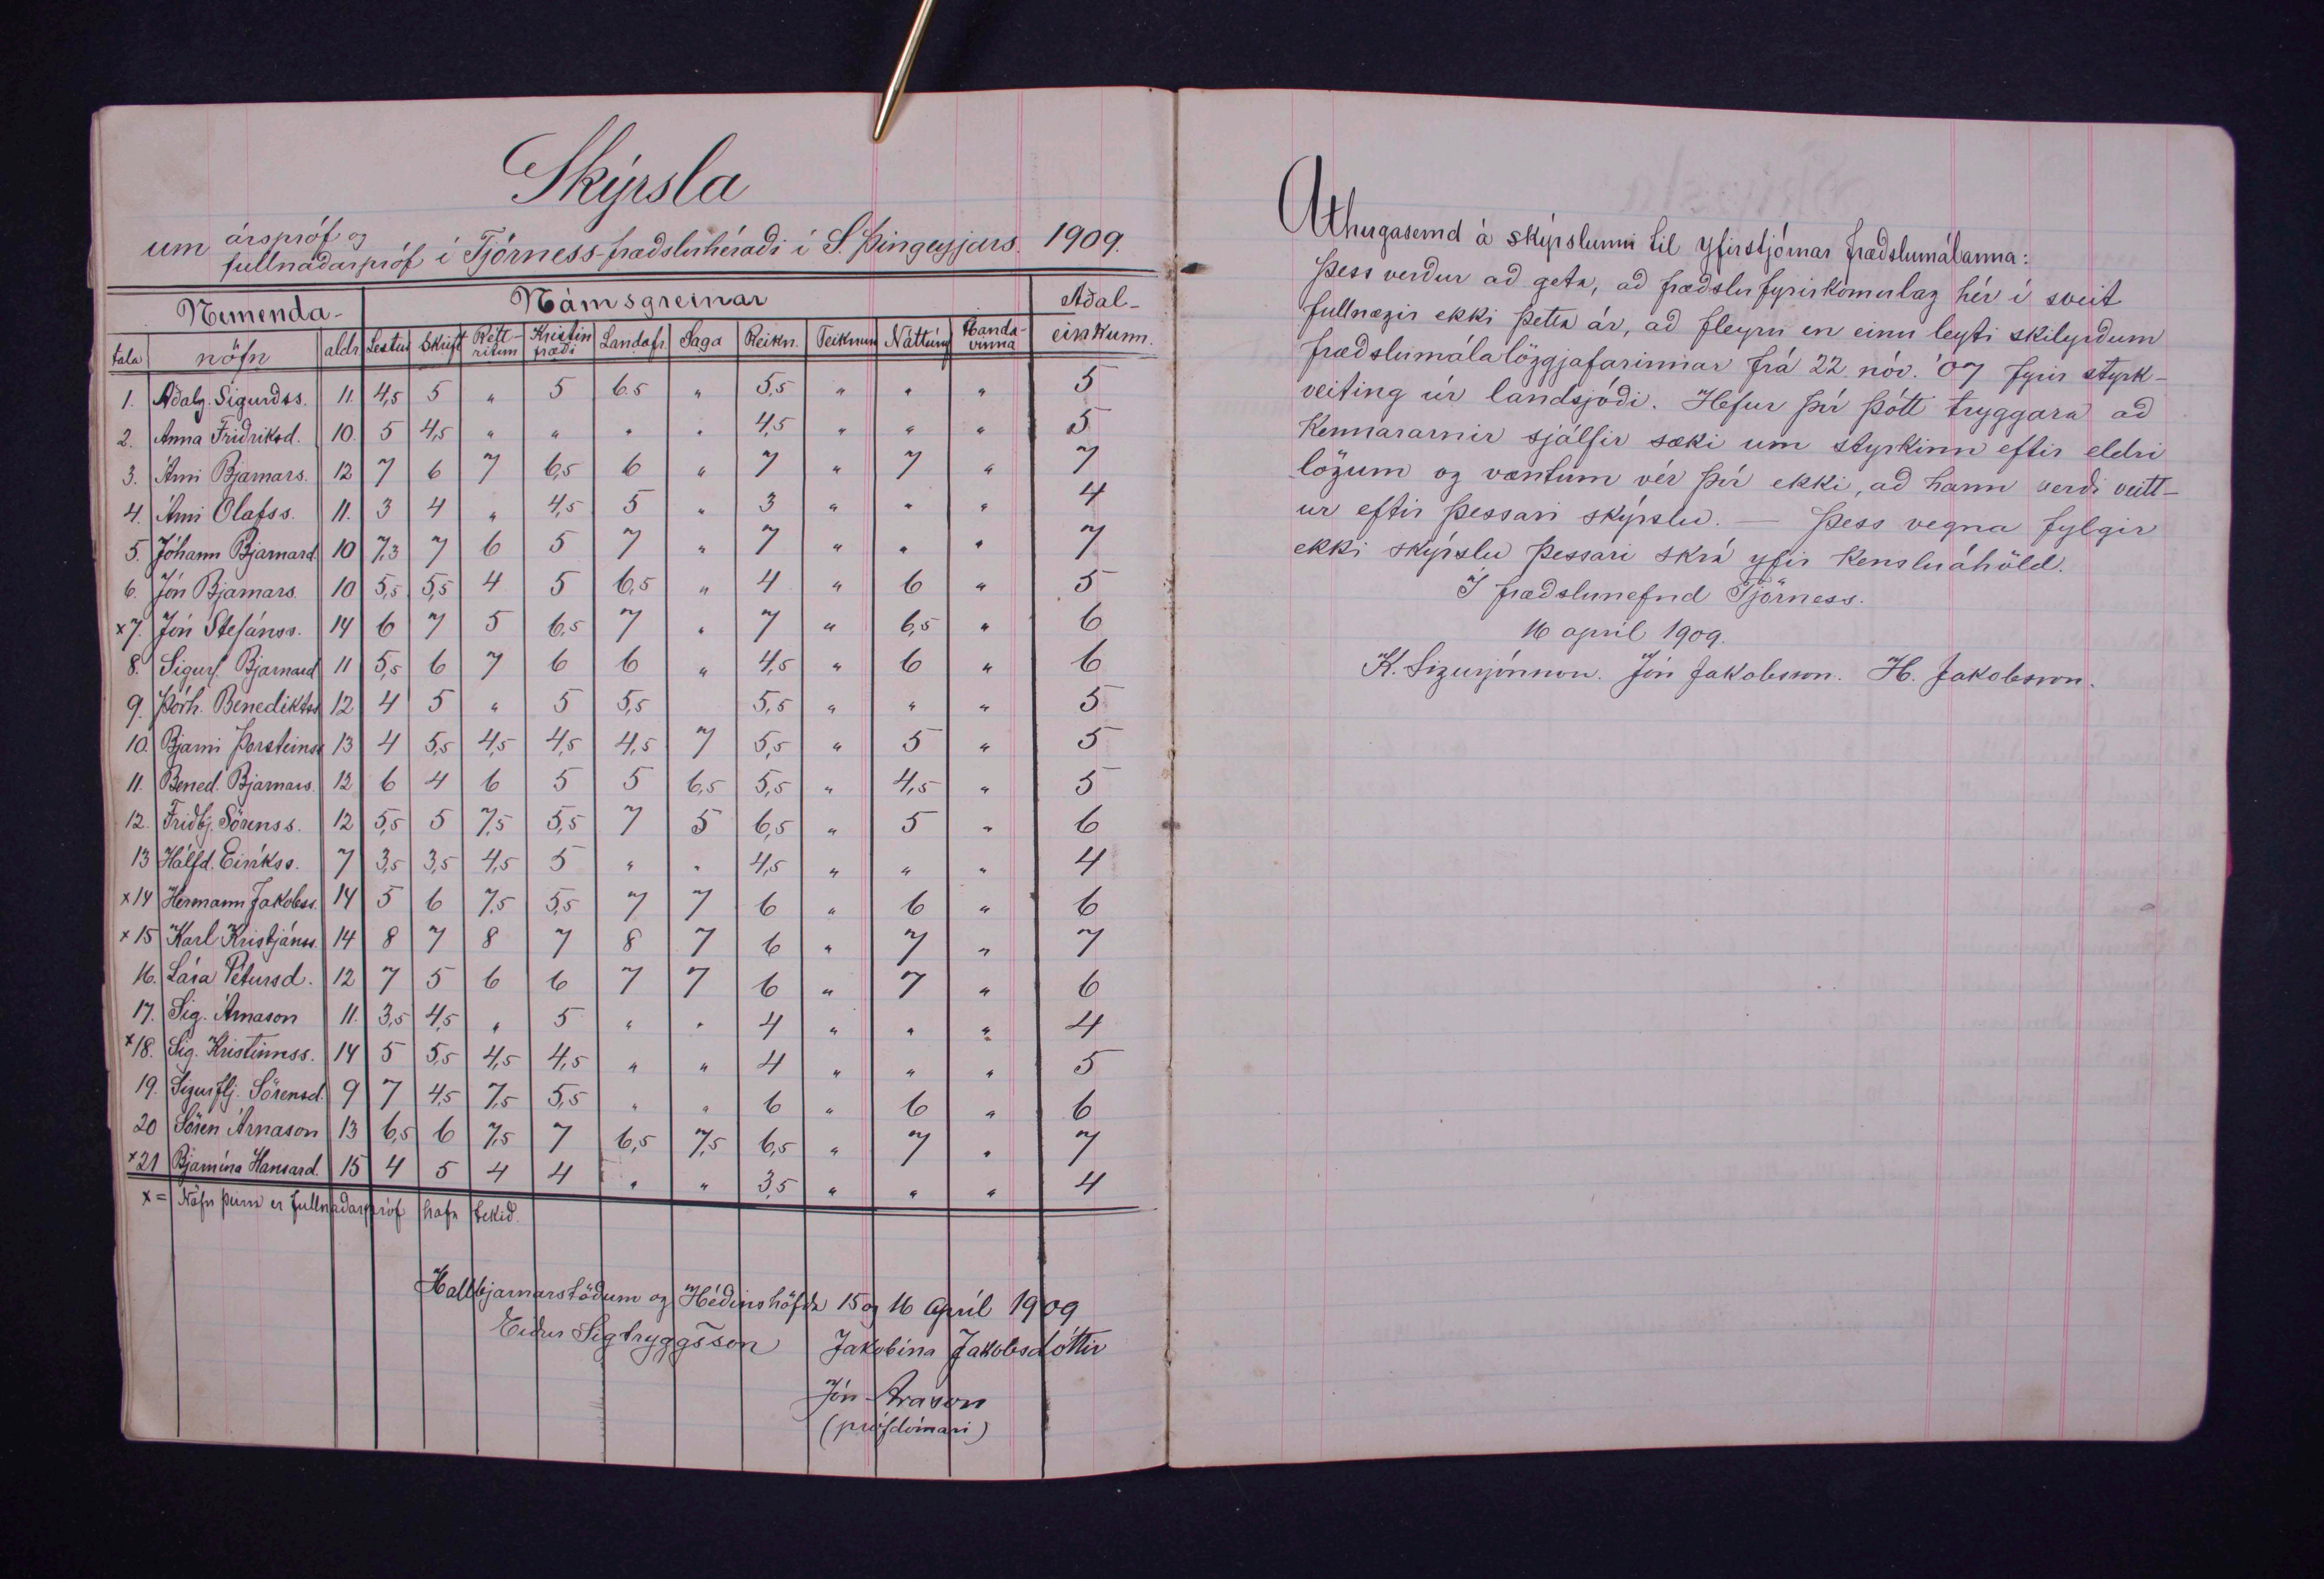 Skýrsla
um árspróf og
fullnaðarpróf í Tjörness-fræðsluhéraði í S. Þingeyjars. 1909.
Nemenda- Námsgreinar Aðal-
tala nöfn aldr. Lestur Skrift Rett-ritun Kristin fræði Landafr. Saga Reikn. Teiknun Náttúruf Handa-vinna einkunn.
1. Aðalg. Sigurdss. 11. 4,5 5 " 5 6.5 " 5,5 " " " 5
2. Anna Friðriksd. 10. 5 4,5 " " " " 4,5 " " " 5
3. Árni Bjarnars. 12 7 6 7 6,5 6 " 7 " 7 " 7
4. Árni Ólafss. 11. 3 4 " 4,5 5 " 3 " " " 4
5. Jóhann Bjarnard. 10 7,3 7 6 5 7 " 7 " " " 7
6. Jón Bjarnars. 10 5,5 5,5 4 5 6,5 " 4 " 6 " 5
x7. Jón Stefánss. 14 6 7 5 6,5 7 " 7 " 6,5 " 6
8. Sigurj. Bjarnard 11 5,5 6 7 6 6 " 4,5 " 6 " 6
9. Þórh. Benediktss 12 4 5 " 5 5,5 5,5 " " " 5
10. Bjarni Þorsteinss 13 4 5,5 4,5 4,5 4,5 7 5,5 " 5 " 5
11. Bened. Bjarnars. 12 6 4 6 5 5 6,5 5,5 " 4,5 " 5
12. Fridbj. Sörenss. 12 5,5 5 7,5 5,5 7 5 6,5 " 5 " 6
13 Hálfd. Eiríkss. 7 3,5 3,5 4,5 5 " " 4,5 " " " 4
x14 Hermann Jakobss. 14 5 6 7,5 5,5 7 7 6 " 6 " 6
x15 Karl Kristjánss. 14 8 7 8 7 8 7 6 " 7 " 7
16. Lára Pétursd. 12 7 5 6 6 7 7 6 " 7 " 6
17. Sig. Árnason 11. 3,5 4,5 " 5 " " 4 " " " 4
x18. Sig. Kristinnss. 14 5 5,5 4,5 4,5 " " 4 " " " 5
19. Sigurflj. Sörensd. 9 7 4,5 7,5 5,5 " " 6 " 6 " 6
20 Sören Árnason 13 6,5 6 7,5 7 6,5 7,5 6,5 " 7 " 7
x21 Bjarnína Hansard. 15 4 5 4 4 " " 3,5 " " " 4
x = Nöfn þeirra er fullnaðarpróf hafa tekið.
Hallbjarnarstöðum og Héðinshöfða 15 og 16 Apríl 1909
Eiður Sigtryggsson Jakobína Jakobsdóttir
Jón Arason
(prófdómari)
Athugasemd á skýrslunni til yfirstjórnar fræðslumálanna:
Þess verður að geta, að fræðslufyrirkomulag hér í sveit
fullnægir ekki þetta ár, að fleyru en einu leyti skilyrðum
fræðslumálalöggjafarinnar frá 22. nóv. '07 fyrir styrk-
veiting úr landsjóði. Hefur því þótt tryggara að
Kennararnir sjálfir sæki um styrkinn eftir eldri
lögum og væntum vér því ekki, að hann verði veitt-
ur eftir þessari skýrslu. — Þess vegna fylgir
ekki skýrslu þessari skrá yfir Kensluáhöld.
Í fræðslunefnd Tjörness.
16 apríl 1909.
K. Sigurjónsson. Jón Jakobsson. H. Jakobsson.